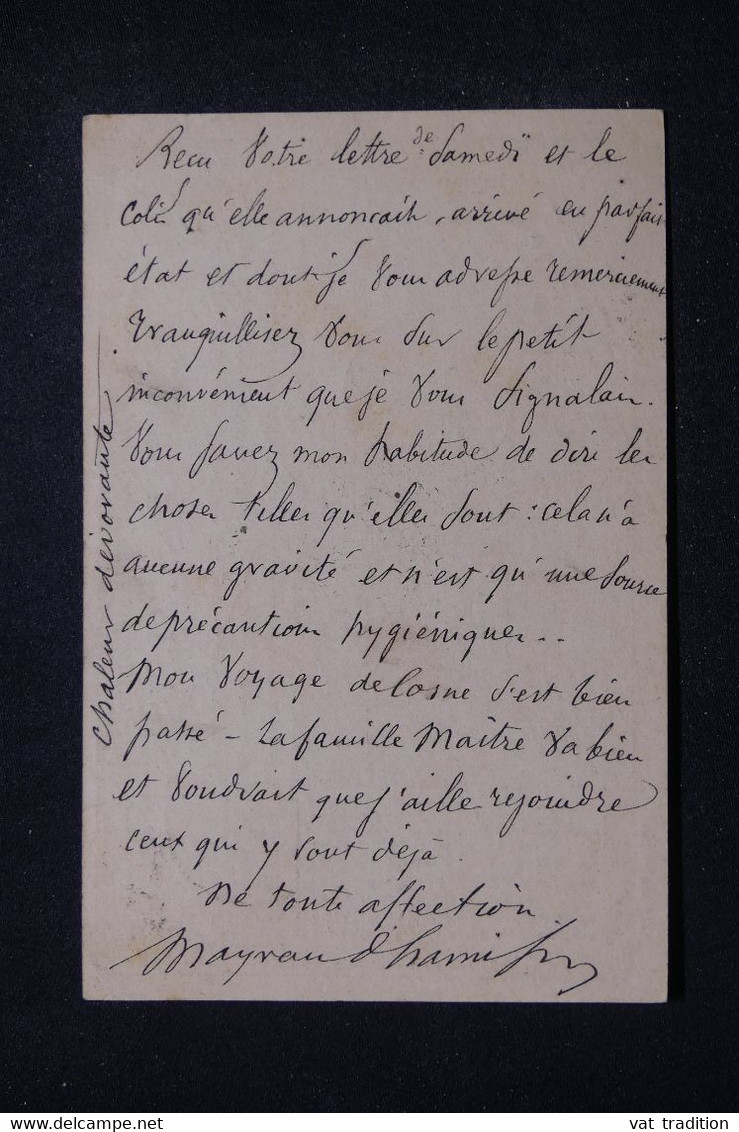 Recu Votre lettre de Samedi et le
colis qu'elle annoncait, arrivé en parfait
état et dont je Vous adresse remerciements
Tranquillisez Vous Sur le petit
inconvénient que je Vous Signalais.
Vous Savez mon habitude de dire les
choses telles qu'elles Sont : cela n'a
aucune gravité et n'est qu'une Source
de précautions hygiéniques..
Mon Voyage de Losne S'est bien
passé - La famille Maître Va bien
et Voudrait que j'aille rejoindre
ceux qui y sont déjà.
De toute affection.
chaleur dévorante
vat tradition